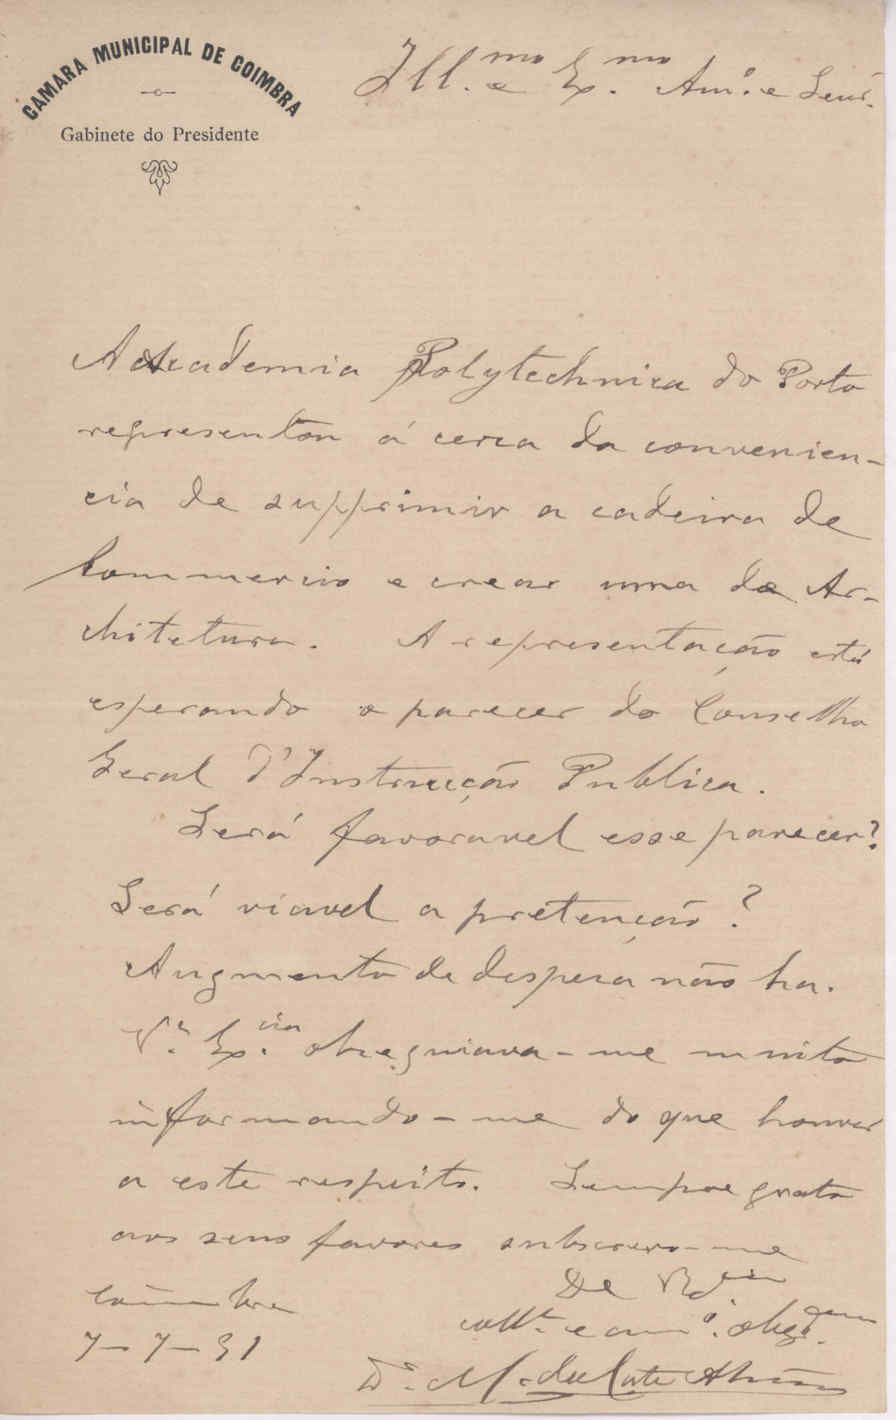 CAMARA MUNICIPAL DE COIMBRA
Gabinete do Presidente
Ill.mo e Ex.mo Am.o e Senr.
A Academia Polytechnica do Porto
representou á cerca da convenien-
cia de supprimir a cadeira de
Commercio e crear uma de Ar-
chitetura. A representação está
esperando o parecer do Conselho
Geral d'Instrucção Publica.
Será favoravel esse parecer?
Será viavel a pretenção?
Augmento de despeza não ha.
V.a Ex.cia obsequiava-me muito
informando-me do que houver
a este respeito. Sempre grato
aos seus favores subscrevo-me
De V.
Coimbra
coll.a e am.o obg.
7-7-91
D.r M. da Costa